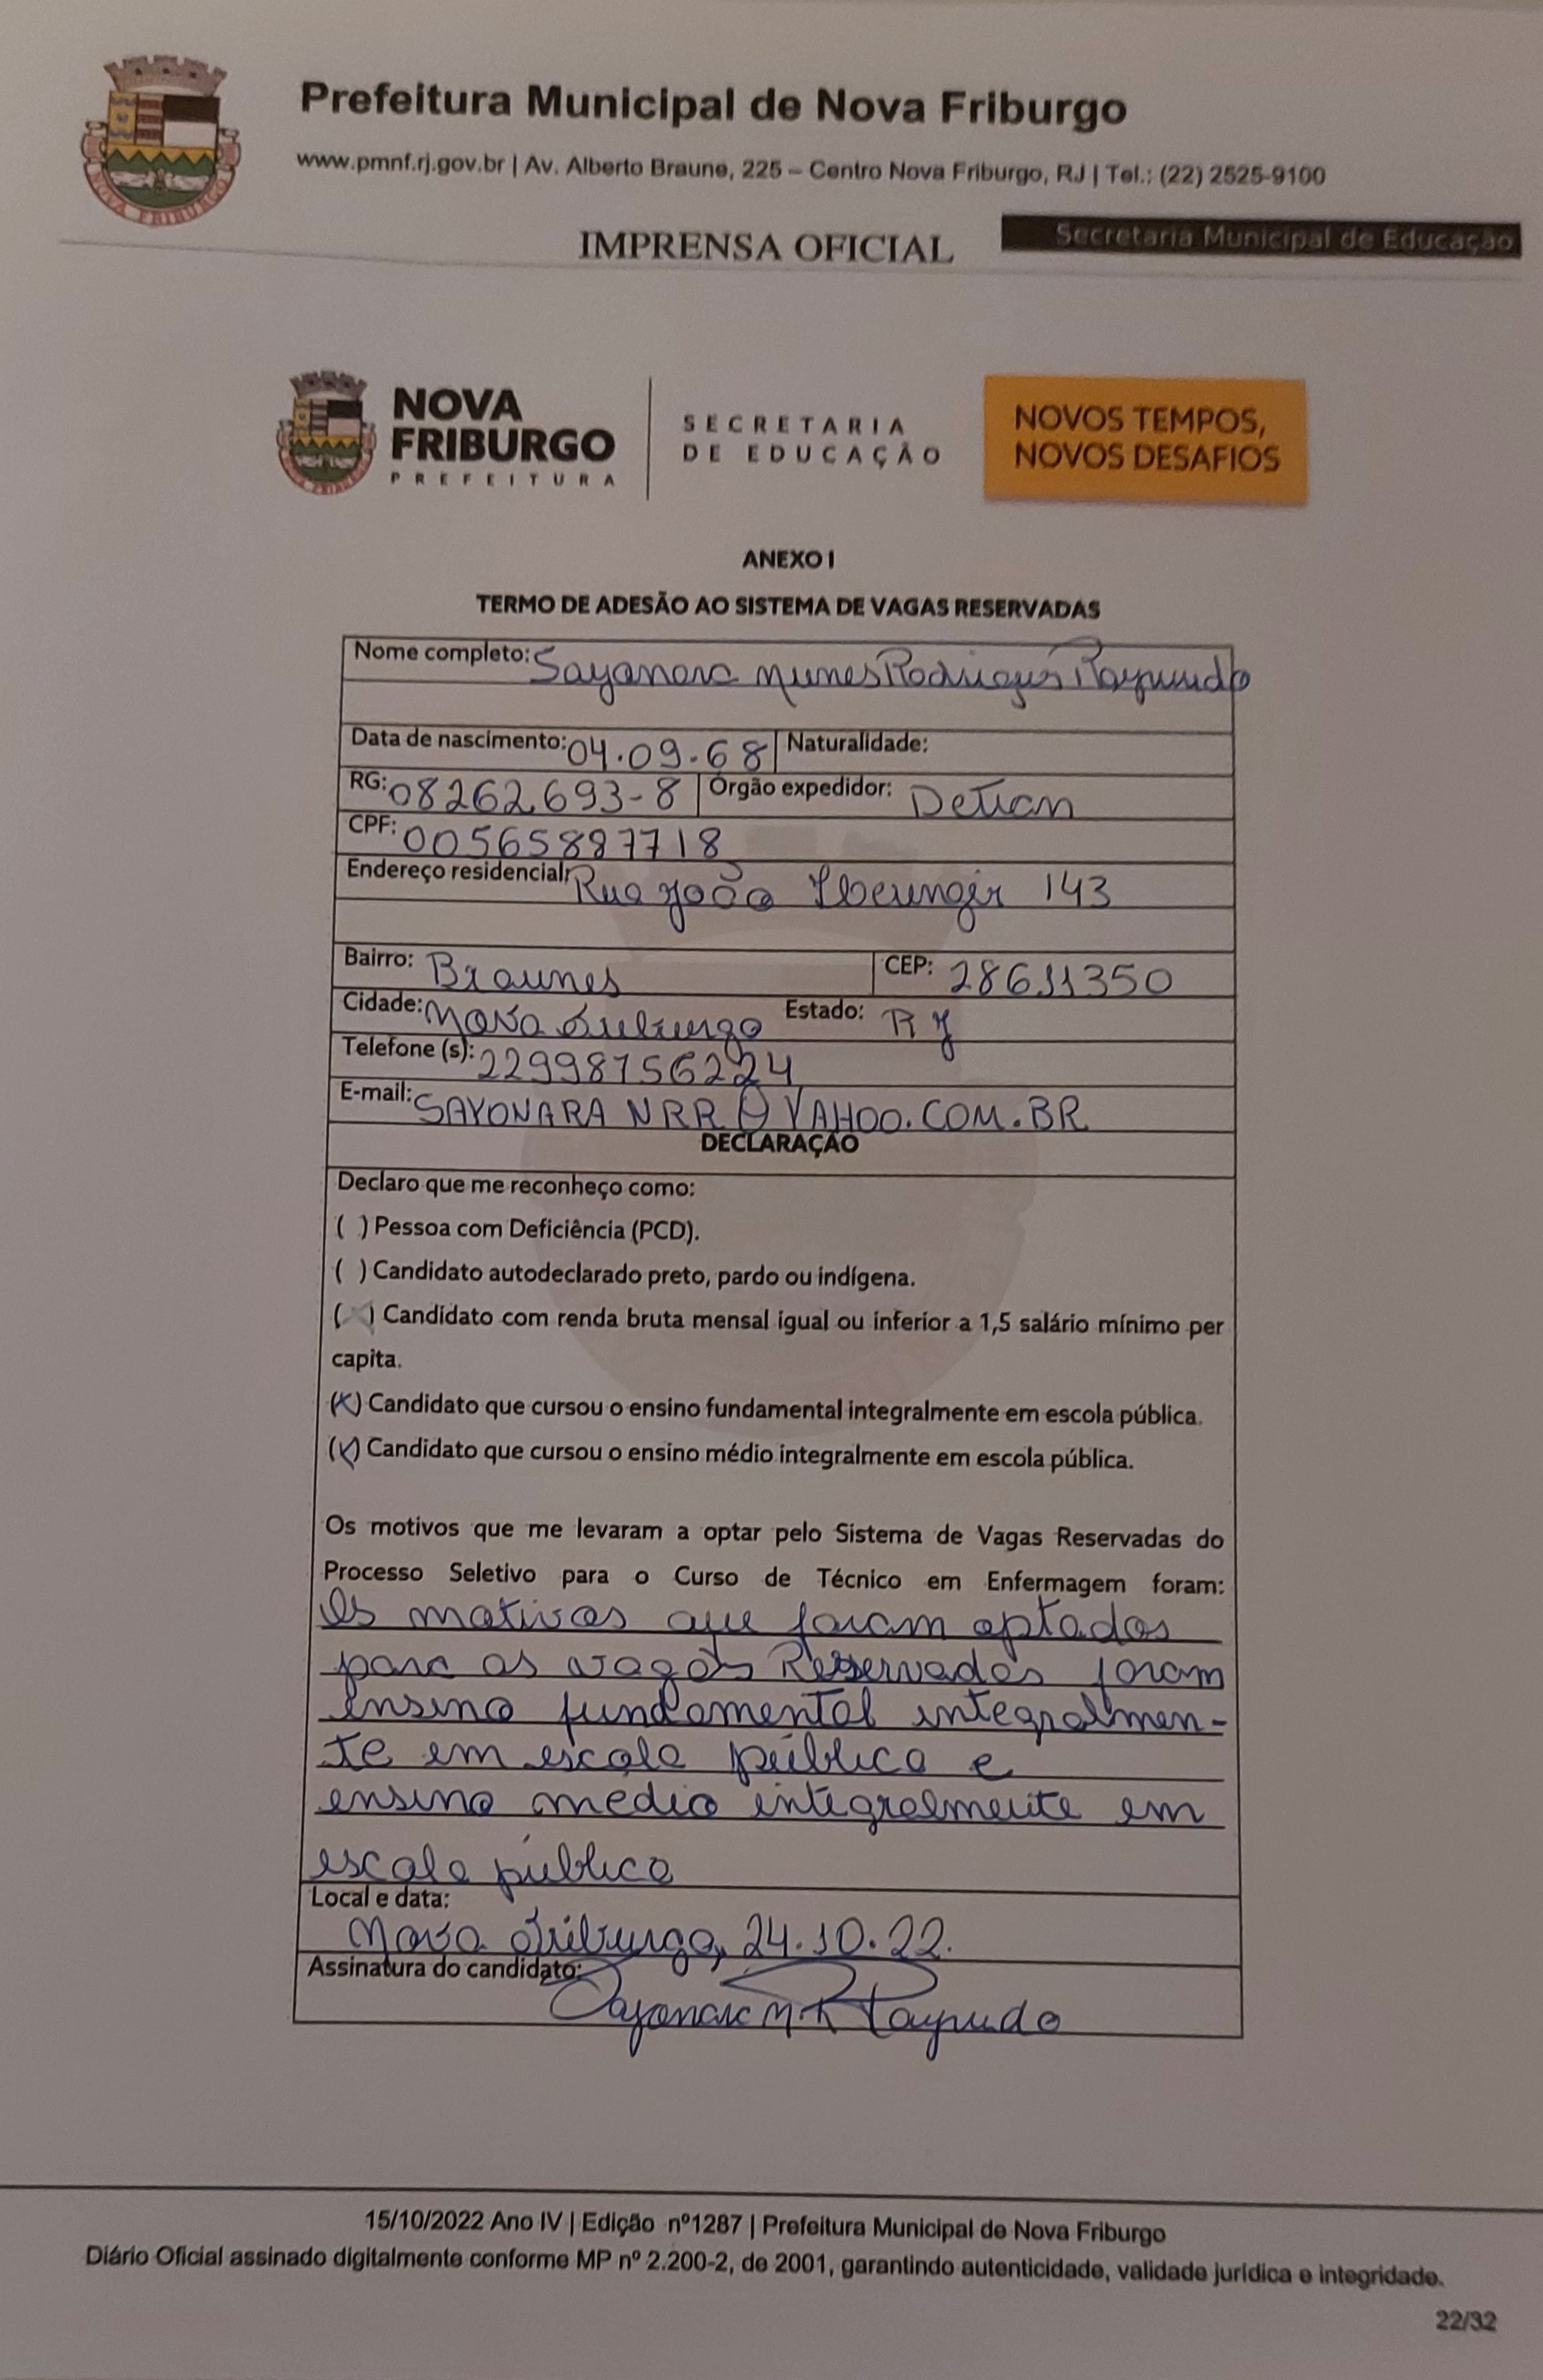 Prefeitura Municipal de Nova Friburgo
www.pmnf.rj.gov.br | Av. Alberto Braune, 225 – Centro Nova Friburgo, RJ | Tel.: (22) 2525-9100
IMPRENSA OFICIAL
Secretaria Municipal de Educação
NOVA FRIBURGO
NOVA
FRIBURGO
PREFEITURA
SECRETARIA
DE EDUCAÇÃO
NOVOS TEMPOS,
NOVOS DESAFIOS
ANEXO I
TERMO DE ADESÃO AO SISTEMA DE VAGAS RESERVADAS
Nome completo: Sayonara Nunes Rodrigues Raymundo
Data de nascimento: 04.09.68 Naturalidade:
RG: 08262693-8 Órgão expedidor: Detran
CPF: 00565887718
Endereço residencial: Rua João 143
Bairro: Braunes CEP: 28611350
Cidade: Nova Friburgo Estado: RJ
Telefone (s): 22998156224
E-mail: SAYONARA NRR@YAHOO.COM.BR
DECLARAÇÃO
Declaro que me reconheço como:
( ) Pessoa com Deficiência (PCD).
( ) Candidato autodeclarado preto, pardo ou indígena.
( ) Candidato com renda bruta mensal igual ou inferior a 1,5 salário mínimo per
capita.
(X) Candidato que cursou o ensino fundamental integralmente em escola pública.
(X) Candidato que cursou o ensino médio integralmente em escola pública.
Os motivos que me levaram a optar pelo Sistema de Vagas Reservadas do
Processo Seletivo para o Curso de Técnico em Enfermagem foram:
Os motivos que foram optados
para as vagas Reservadas foram
ensino fundamental integralmen-
te em escola pública e
ensino médio integralmente em
escola pública
Local e data:
Nova Friburgo, 24.10.22.
Assinatura do candidato:
Sayonara N. R Raymundo
15/10/2022 Ano IV | Edição nº1287 | Prefeitura Municipal de Nova Friburgo
Diário Oficial assinado digitalmente conforme MP nº 2.200-2, de 2001, garantindo autenticidade, validade jurídica e integridade.
22/32